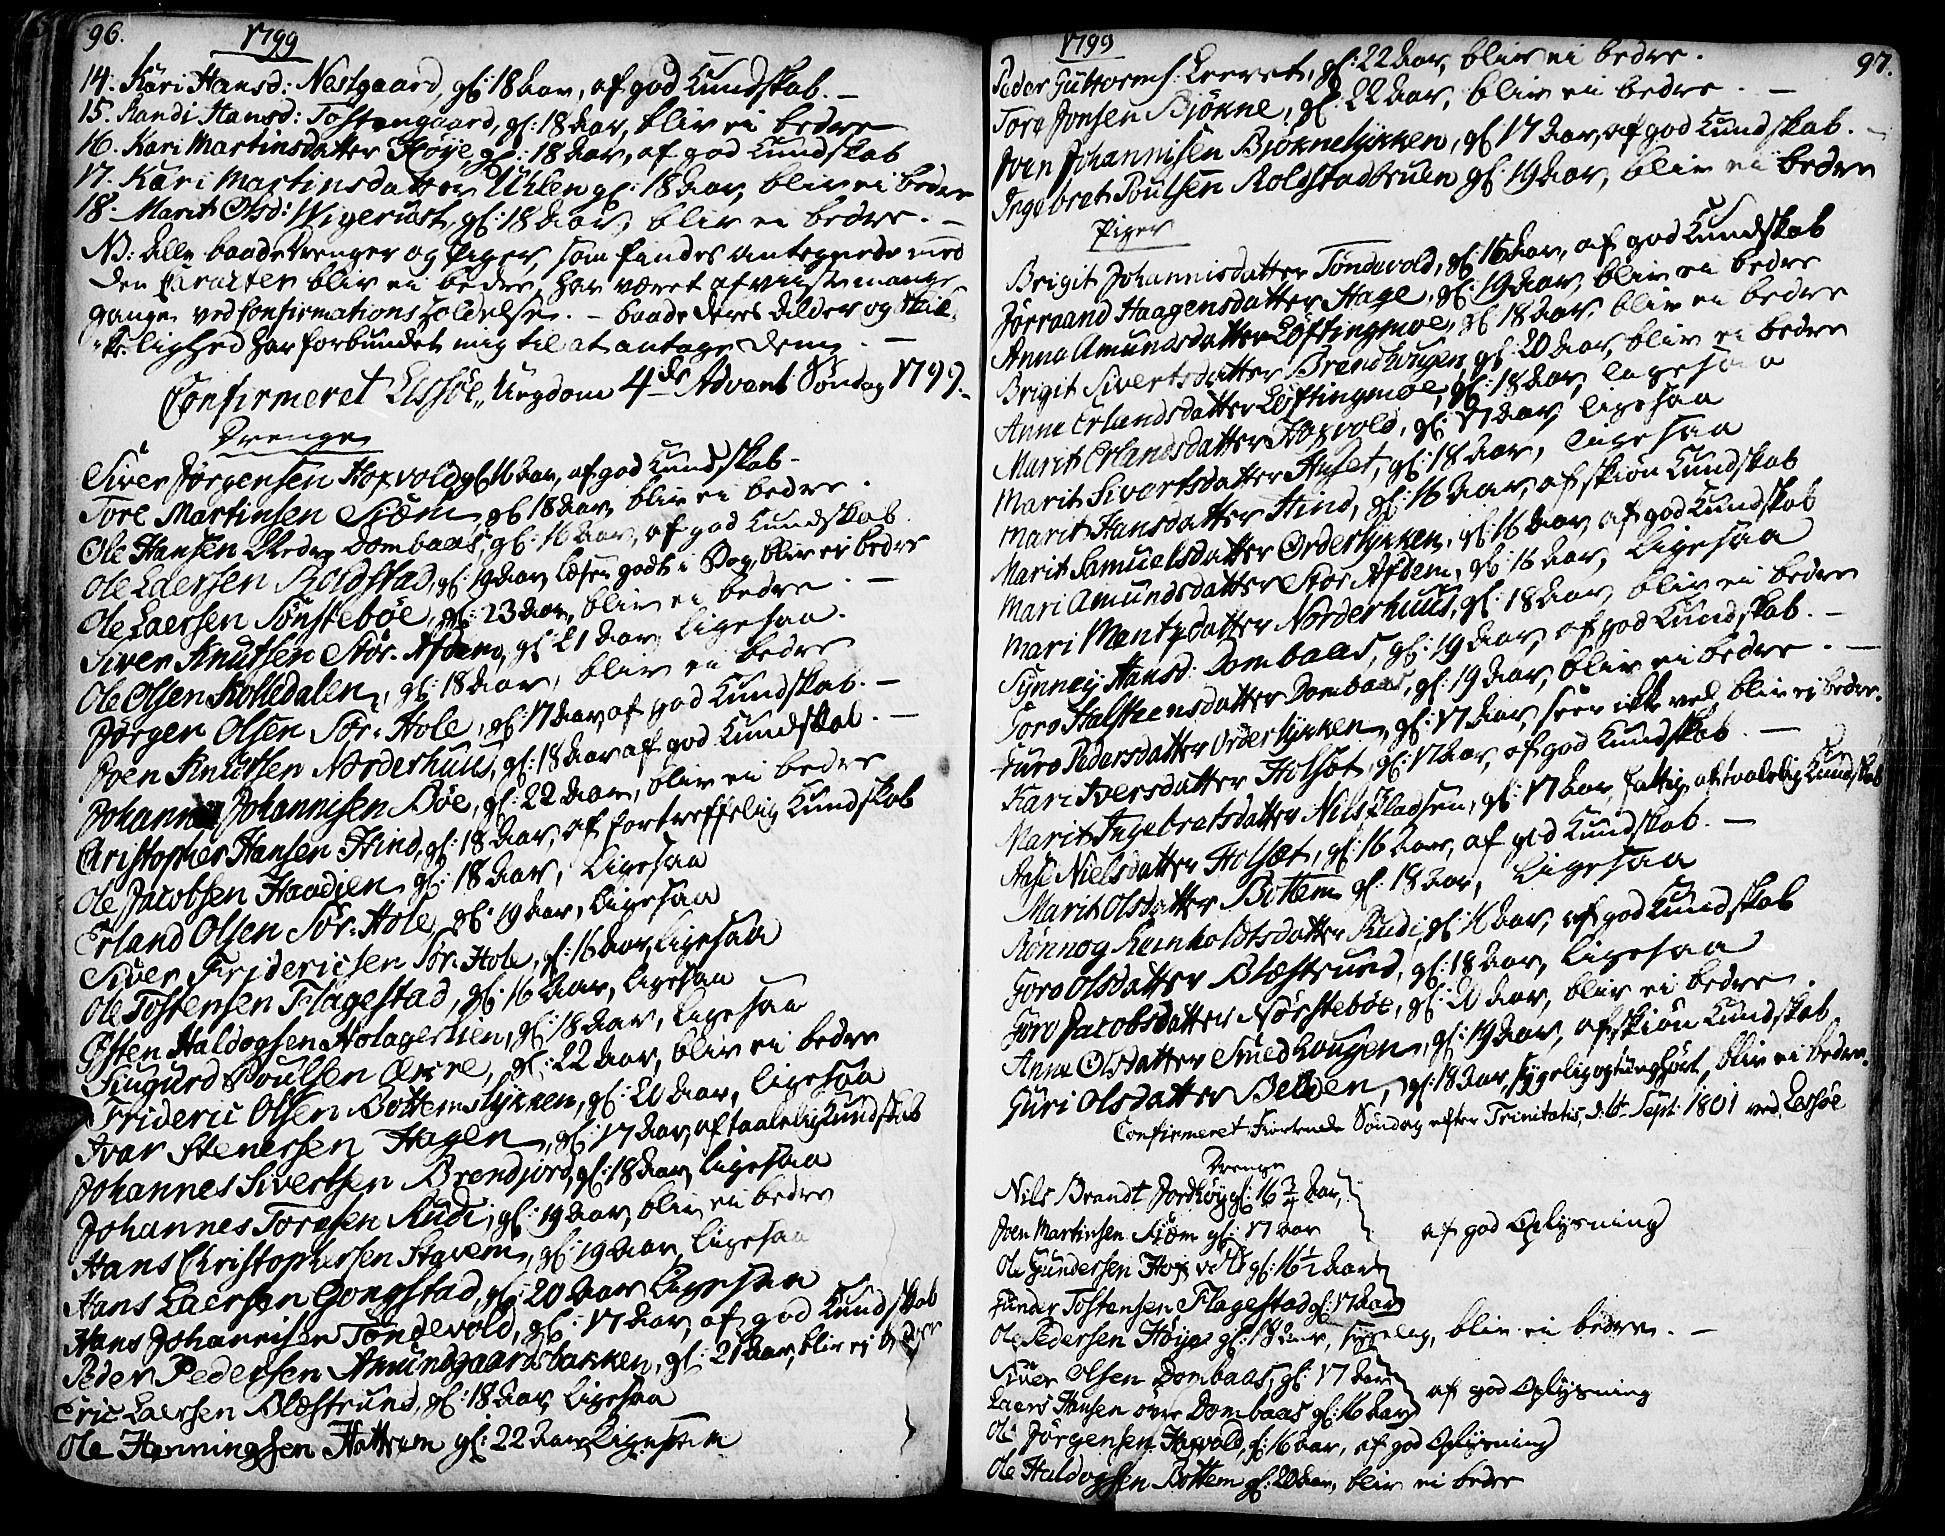 96.
1799
14. Kari Hansd: Nestgaard, gl: 18 Aar, af god Kundskab. –
15. Randi Hansd: Tostengaard, gl: 18 Aar, bliv ei bedre
16. Kari Martinsdatter Høye, gl: 18 Aar, af god Kundskab
17. Kari Martinsdatter Uhlen gl: 18 Aar, bliv ei bedre
18. Marit Olsd: Wigerust, gl: 18 Aar, bliv ei bedre. –
NB: Alle baade Drenger og Piger, som findes antegnede med
den Caracter bliv ei bedre, har været afviiste mange
gange ved Confirmations Holdelse. – baade deres Alder og
lighed har forbundet mig til at antage dem. –
Confirmeret Lessøe Ungdom 4de Advent Søndag 1799.
Drenge
Siver Jørgensen Hoxvold gl: 16 Aar, af god Kundskab.
Tore Martinsen Siøm gl: 18 Aar, bliv ei bedre.
Ole Hansen Nedre Dombaas, gl: 16 Aar, af god Kundskab.
Ole Laersen Roldstad, gl: 19 Aar, læser godt i Bog, bliv ei bedre
Ole Laersen Sønstebøe, gl: 23 Aar, bliv ei bedre. –
Siver Knutsen Stor-Afdem, gl: 21 Aar, ligesaa.
Ole Olsen Kolledalen, gl: 18 Aar, bliv ei bedre
Jørgen Olsen Sør-Hole, gl: 17 Aar, af god Kundskab. –
Joen Knutsen Norderhuus, gl: 18 Aar, af god Kundskab. –
Johannes Johannisen Bøe, gl: 22 Aar, bliv ei bedre
Christopher Hansen Hind, gl: 18 Aar, af fortreffelig Kundskab
Ole Jacobsen Haadien gl: 18 Aar, ligesaa
Erland Olsen Sør-Hole, gl: 19 Aar, ligesaa
Siver Fridericsen Sør-Hole, gl: 16 Aar, ligesaa
Ole Tostensen Flagestad, gl: 16 Aar, ligesaa
Østen Haldogsen Holageilien, gl: 18 Aar, ligesaa
Siugurd Poulsen Ware, gl: 22 Aar, bliv ei bedre
Frideric Olsen Bottemslykken, gl: 20 Aar, ligesaa
Ivar Stenersen Hagen, gl: 17 Aar, af taalelig Kundskab
Johannes Sivertsen Brendjord, gl: 18 Aar, ligesaa
Johannes Toresen Rudi, gl: 19 Aar, bliv ei bedre
Hans Christophersen Stavem, gl: 19 Aar, ligesaa
Hans Laersen Gongstad, gl: 20 Aar ligesaa
Hans Johannisen Tøndevold, gl: 17 Aar, af god Kundskab
Peder Pedersen Amundgaardsbakken, gl: 21 Aar, bliv ei bedre
Eric Laersen Blæstrund, gl: 18 Aar, ligesaa
Ole Henningsen Hattrem gl: 22 Aar, ligesaa
1799
97.
Peder Guttormsen Lerret, gl: 22 Aar, bliv ei bedre.
Tore Jonsen Bjøkne, gl: 22 Aar, bliv ei bedre. –
Joen Johannisen Bjøknelykken, gl: 17 Aar, af god Kundskab. –
Ingebret Poulsen Roldstadbruen gl: 19 Aar, bliv ei bedre
Piger
Brigit Johannisdatter Tøndevold, gl: 16 Aar, af god Kundskab
Jørraand Haagensdatter Hage, gl: 19 Aar, bliv ei bedre
Anna Amundsdatter Løftingmoe, gl: 18 Aar, bliv ei bedre
Brigit Sivertsdatter Brendhougen, gl: 20 Aar, bliv ei bedre
Anne Erlandsdatter Løftingmoe, gl: 18 Aar, ligesaa
Marit Erlandsdatter Hoxvold, gl: 17 Aar, ligesaa
Marit Sivertsdatter Huset, gl: 18 Aar, ligesaa
Marit Hansdatter Hind, gl: 16 Aar, af skiøn Kundskab
Marit Samuelsdatter Orderlykken, gl: 16 Aar, af god Kundskab
Mari Amundsdatter Stor Afdem, gl: 16 Aar, ligesaa
Mari Mentzdatter Norderhuus, gl: 18 Aar, bliv ei bedre
Synnev Hansd: Dombaas, gl: 19 Aar, af god Kundskab. –
Goro Halstensdatter Dombaas, gl: 19 Aar, bliv ei bedre. –
Guro Pedersdatter Orderlykken, gl: 17 Aar, seer ikke vel, bliv ei bedre.
Kari Iversdatter Holset, gl: 17 Aar, af god Kundskab. –
Marit Ingebretsdatter Nils Pladsen, gl: 17 Aar, fattig, af taalelig Kundskab
Aase Nielsdatter Holset, gl: 16 Aar, af god Kundskab. –
Marit Olsdatter Bottem gl: 18 Aar, ligesaa
Rønnog Reinholdtsdatter Rudi, gl: 16 Aar, af god Kundskab
Goro Olsdatter Blæstrund, gl: 18 Aar, ligesaa
Goro Jacobsdatter Nørstebøe, gl: 20 Aar, bliv ei bedre.
Anne Olsdatter Smedhougen, gl: 19 Aar, af skiøn Kundskab.
Guri Olsdatter Belden, gl: 18 Aar, sygelig og tunghørt, bliv ei bedre.
Confirmeret Fiortende Søndag efter Trinitatis, d. 6. Sept: 1801 ved Lessøe
Drenge
Nils Brandt Jordhøy gl: 16 3/4 Aar,
Joen Martinsen Siøm gl: 17 Aar
af god Oplysning
Ole Gundersen Hoxvold gl: 16 1/2 Aar
Gunder Tostensen Flagestad gl: 17 Aar
Ole Pedersen Høye gl: 19 Aar, sygelig, bliv ei bedre. –
Siver Olsen Dombaas, gl: 17 Aar
Laers Hansen øvre Dombaas gl: 16 Aar
af god Oplysning
Ole Jørgensen Hoxvold, gl: 16 Aar, af god Oplysning
Ole Haldogsen Bottem gl: 20 Aar, bliv ei bedre